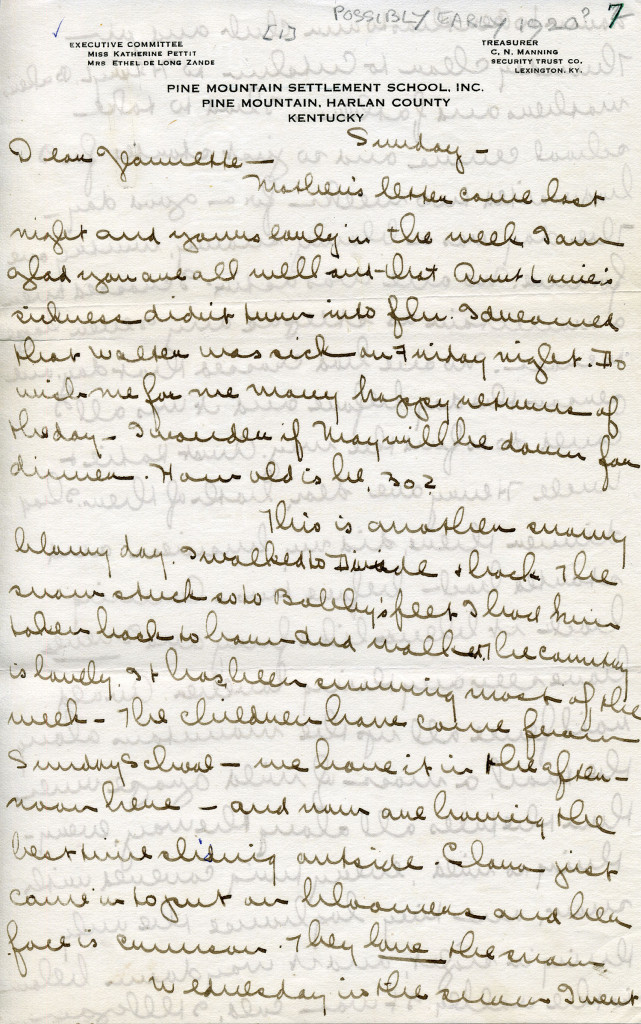 POSSIBLY EARLY 1920? 7
[1]
EXECUTIVE COMMITTEE
MISS KATHERINE PETTIT
MRS ETHEL DE LONG ZANDE
TREASURER
C. N. MANNING
SECURITY TRUST CO.
LEXINGTON, KY.
PINE MOUNTAIN SETTLEMENT SCHOOL, INC.
PINE MOUNTAIN, HARLAN COUNTY
KENTUCKY
Sunday -
Dear Jannette -
Mother's letter came last
night and yours early in the week I am
glad you are all well and that Aunt Louie's
sickness didn't turn into flu. I dreamed
that Walter was sick on Friday night. Do
wish me for me many happy returns of
the day - I wonder if May will be down for
dinner. How old is he, 30?
This is another snowy
blowy day. I walked to Divide & back The
snow stuck so to Bobby's feet I had him
taken back to barn and walked. The country
is lovely. It has been snowing most of the
week - The children have come from
Sunday School - we have it in the after-
noon here - and now are having the
best time sliding outside. Elana just
came in to put on bloomers and her
face is crimson. They love the snow.
Wednesday in the snow I went